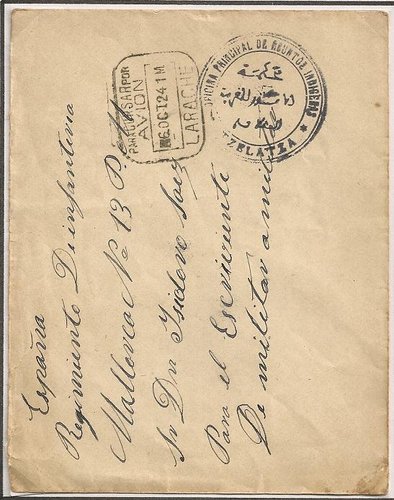 PARA CURSAR POR
AVION
26 OCT 24 1M
LARACHE
OFICINA PRINCIPAL DE ASUNTOS INDIGENAS
TZELATZA
España
Regimiento De infanteria
Mallorca No 13 P.
Sr Dn Ysidoro Saez
Para el Escriviente
De militar